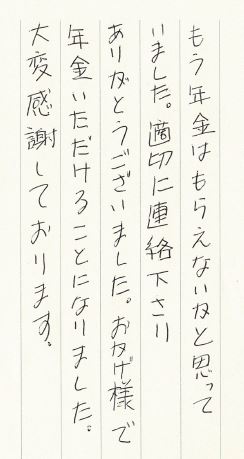 もう年金はもらえないかと思って
いました。適切に連絡下さり
ありがとうございました。おかげ様で
年金いただけることになりました。
大変感謝しております。